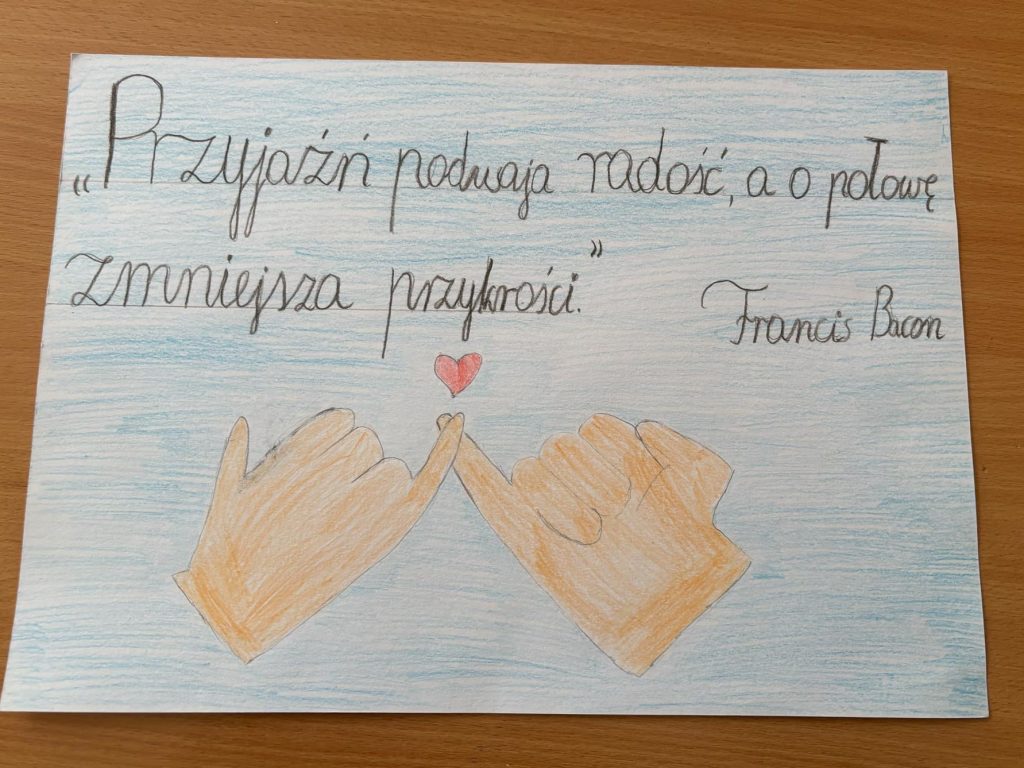 „Przyjaźń podwaja radość, a o połowę
zmniejsza przykrości.”
Francis Bacon